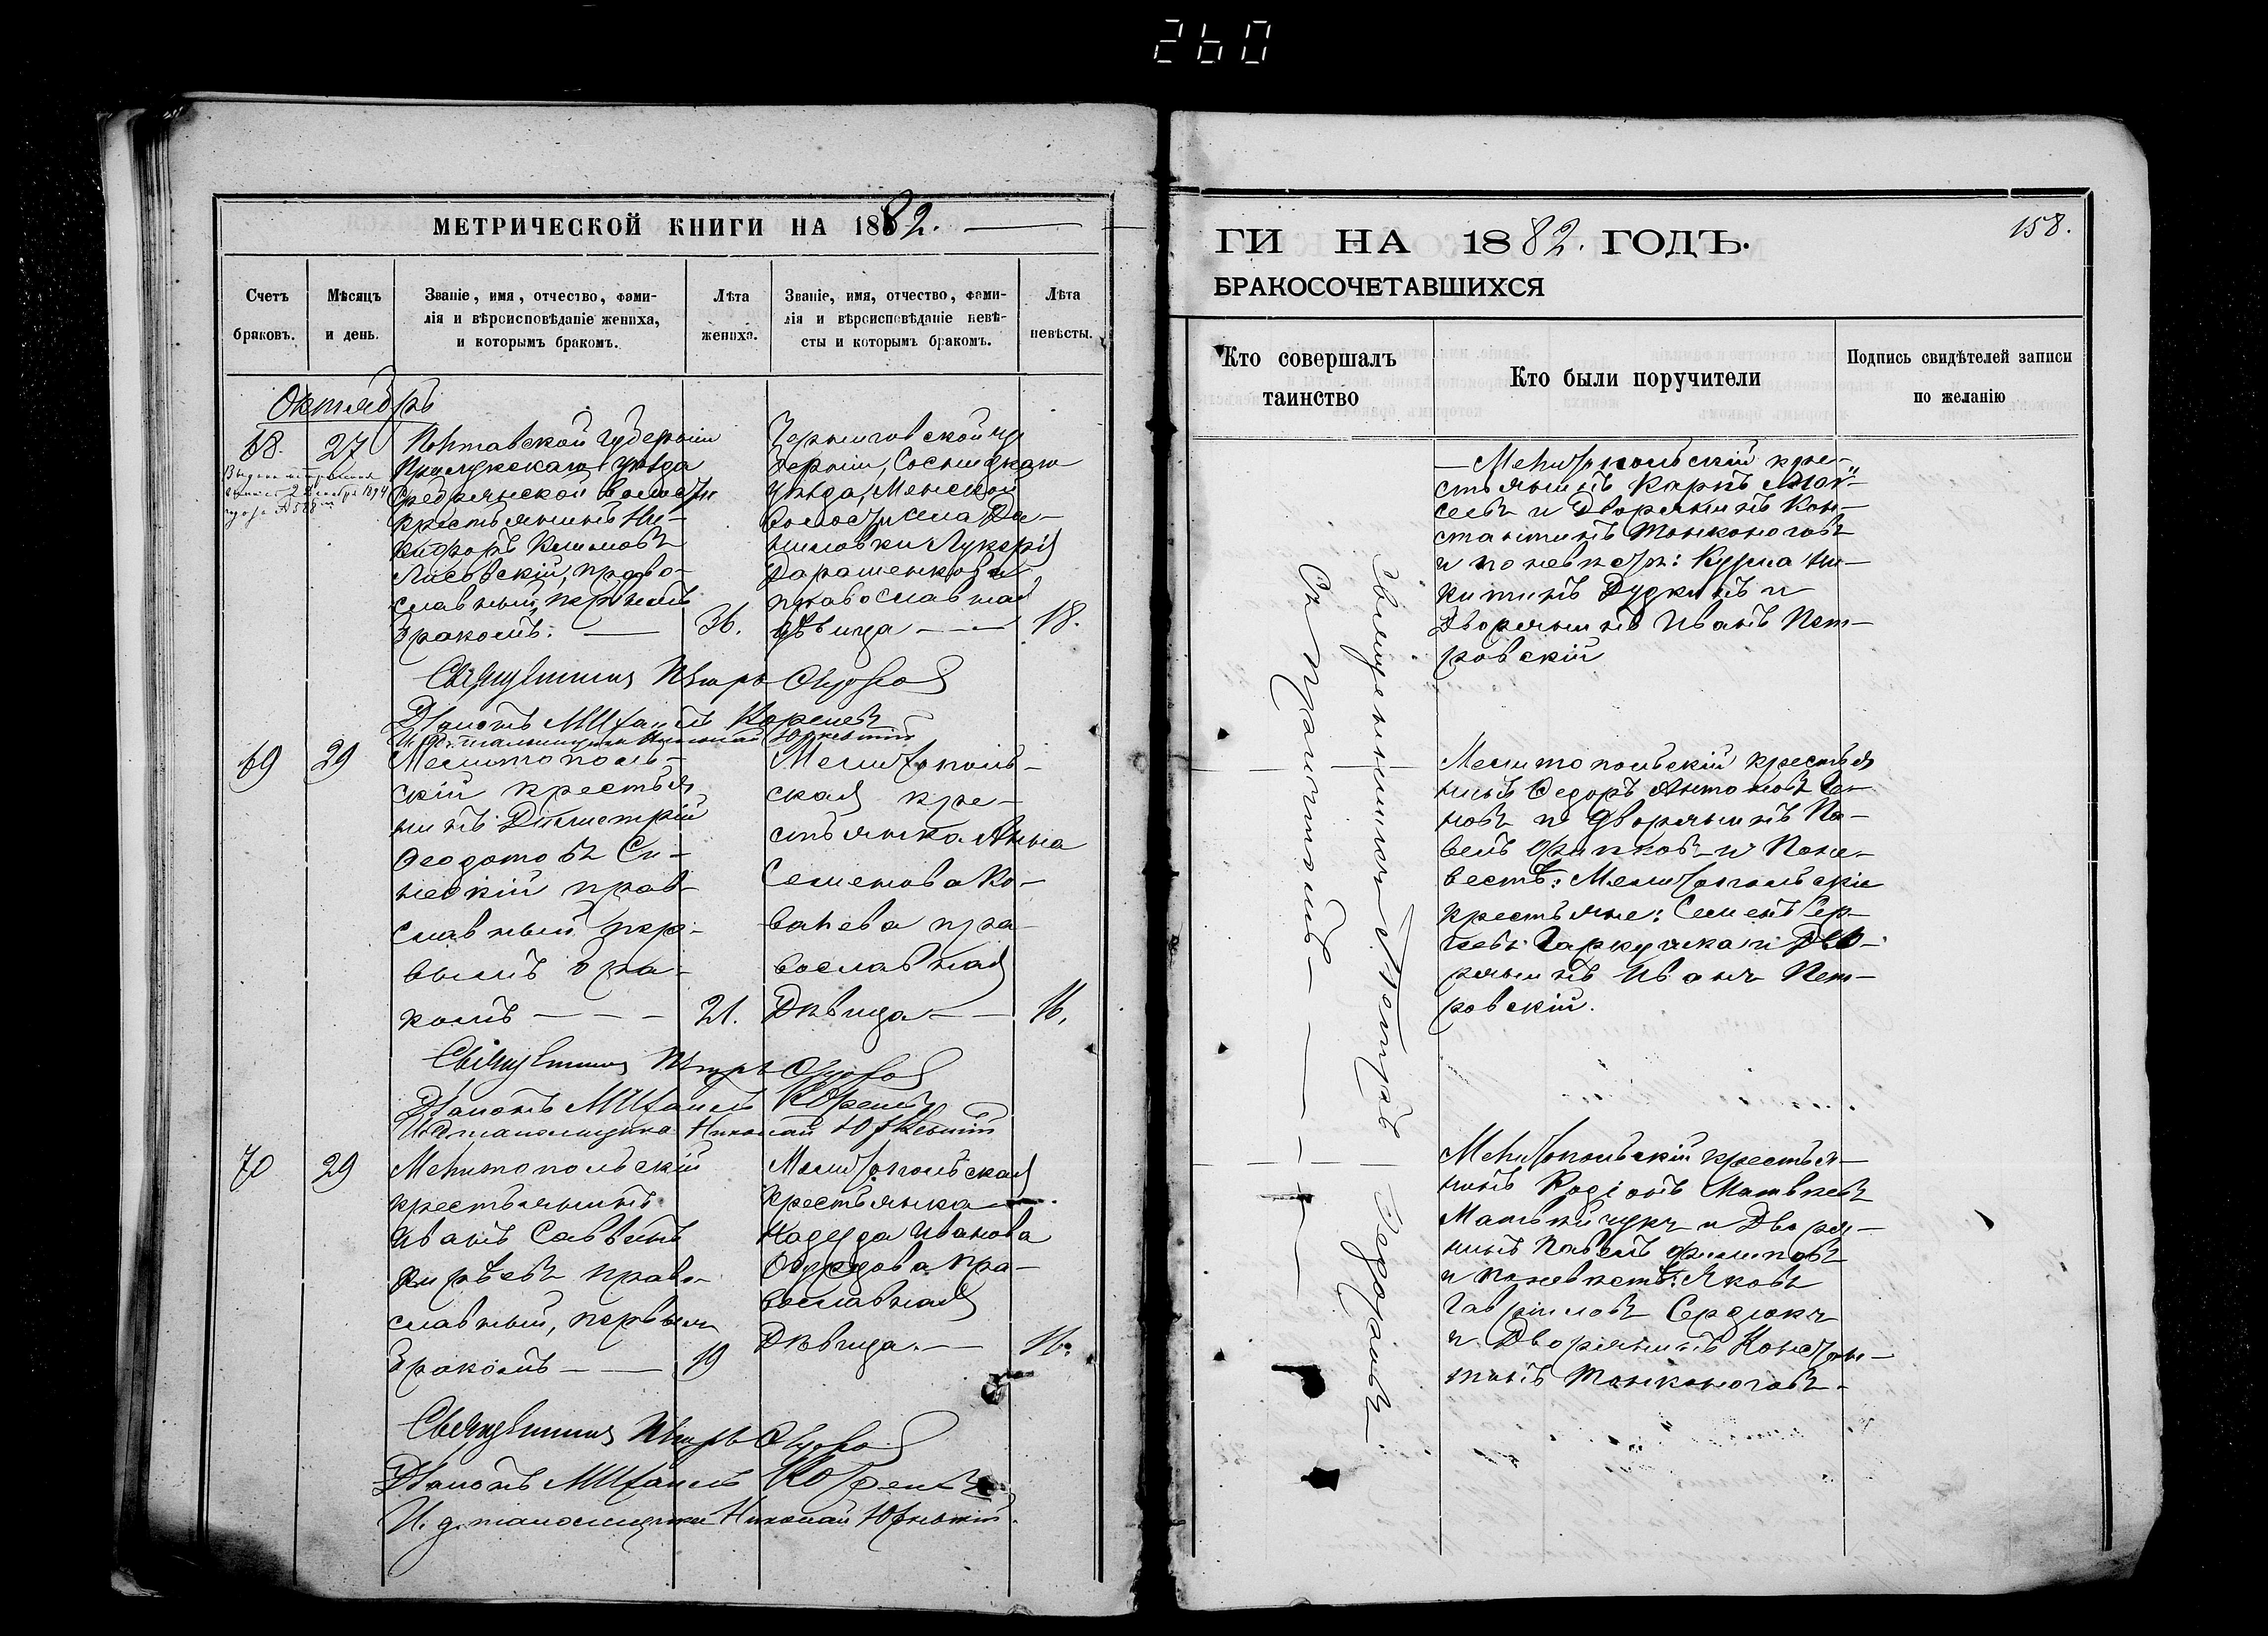 260
МЕТРИЧЕСКОЙ КНИГИ НА 1882.
Счетъ браковъ.
Мѣсяцъ и день.
Званіе, имя, отчество, фами-
лія и вѣроисповѣданіе жениха,
и которымъ бракомъ.
Лѣта жениха.
Званіе, имя, отчество, фами-
лія и вѣроисповѣданіе невѣ-
сты и которымъ бракомъ.
Лѣта невѣсты.
Октябрь
68.
27
Полтавской губерніи
Прилукскаго уѣзда
волости
крестьянинъ Ни-
кифоръ Климовъ
Лисовскій, право-
славный, первымъ
бракомъ. —
36.
Черниговской гу
берніи, Сосницкаго
уѣзда, Менской
волости села Да-
ниловки Лукерія
православная
дѣвица —
18.
Священникъ Петръ
Діаконъ Михаилъ Кореневъ
Николай
69
29
Мелитополь-
скій крестья
нинъ Димитрій
Феодотовъ Си-
нескій прав-
славный пер-
вымъ бра-
комъ — — —
21.
Мелитополь-
ская кре-
стьянка Анна
Семенова Ко-
валева пра-
вославная
Дѣвица —
16.
Священникъ Петръ
Діаконъ Михаилъ
Николай
70
29
Мелитопольскій
крестьянинъ
Иванъ Саввинъ
право-
славный, первымъ
бракомъ — —
19
Мелитопольская
крестьянка —
Надежда Иванова
пра-
вославная
Дѣвица. —
16.
Священникъ Петръ
Діаконъ Михаилъ
И. д. псаломщика Николай
ГИ НА 1882. ГОДЪ.
158.
БРАКОСОЧЕТАВШИХСЯ
Кто совершалъ
таинство
Кто были поручители
Подпись свидѣтелей записи
по желанію
Священникъ Петръ
Съ причтомъ —
— Мелитопольскій кре-
стьянинъ Карпъ
и Дворянинъ Кон-
стантинъ Тонконоговъ
и по невѣстѣ: Кузма Ни-
китинъ Дудкинъ и
Дворянинъ Иванъ Пет-
ровскій
Мелитопольскій крестья
нинъ Федоръ Антоновъ
и дворянинъ Па-
велъ и по не-
вестѣ: Мелитопольскіе
крестьяне: Семенъ Сер-
геевъ Гаркуша и Дво-
рянинъ Иванъ Пет-
ровскій.
Мелитопольскій крестья-
нинъ Родіонъ Матвѣевъ
и Дворя-
нинъ Павелъ Филиповъ
и по невѣстѣ: Яковъ
Гавриловъ Сердюкъ
и Дворянинъ Констан-
тинъ Тонконоговъ.